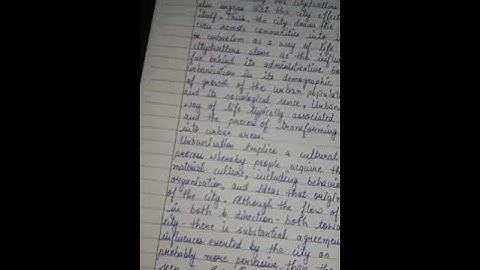 also argues that the city effect
itself. Thus, the city draws the
remote communities into
or urbanism as a way of life
citydwellers alone as the influe
far behind its administrative bo
urbanisation in its demographic
of growth of the urban populat
and its sociological sense, Urban
way of life typically associated
and the process of transforming
into urban areas.
Urbanisation implies a cultural
process whereby people acquire th
material culture, including behavio
organisation, and ideas that origin
of the city. Although the flow of
is in both direction - both towa
city - there is substantial agreemen
influences exerted by the city on
probably more pervasive than the